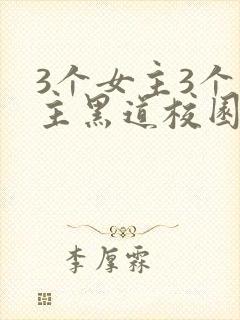 3个女主3个
主黑道校园
李厚霖